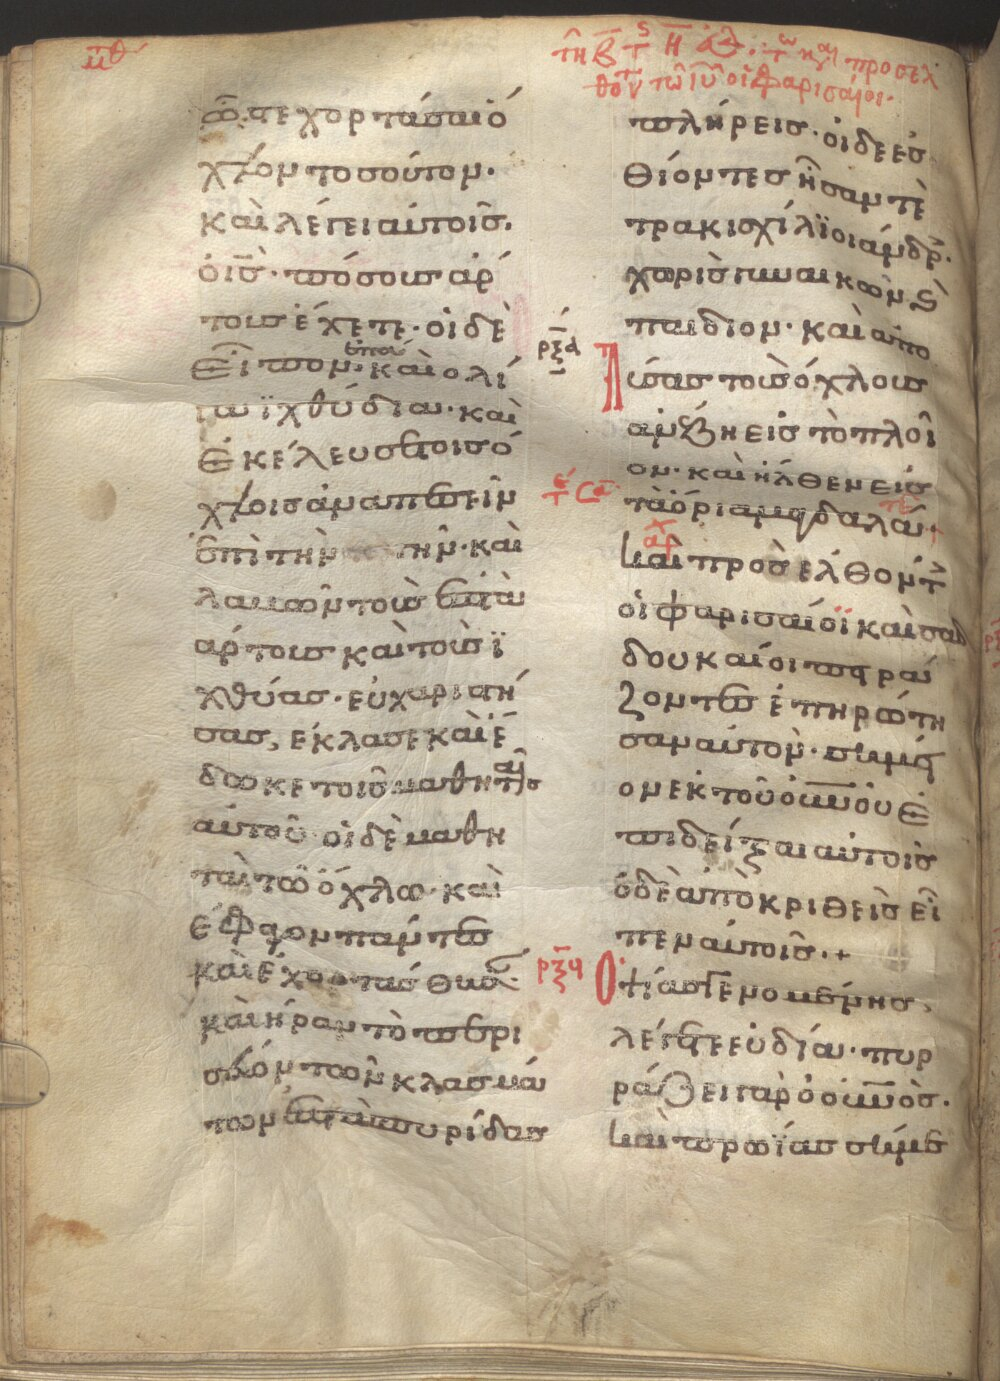 μθ
τῇ β τῆς η ἑβδ. τῷ καιρῷ προσελ
θον τῷ ιυ οἱ φαρισαῖοι.
ὥστε χορτάσαι ὄ
χλον τοσοῦτον.
καὶ λέγει αὐτοῖς.
ὁ ις. πόσους ἄρ
τους ἔχετε. οἱ δὲ
εἶπον. ἑπτὰ καὶ ὀλί
γα ἰχθύδια. καὶ
ἐκέλευσε τοῖς ὄ
χλοις ἀναπεσεῖν
ἐπὶ τὴν γῆν. καὶ
λαβὼν τοὺς ἑπτὰ
ἄρτους καὶ τοὺς ἰ
χθύας. εὐχαριστή
σας, ἔκλασε καὶ ἔ
δωκε τοῖς μαθηταῖς
αὐτοῦ. οἱ δὲ μαθη
ταὶ τῷ ὄχλω. καὶ
ἔφαγον πάντες
καὶ ἐχορτάσθησαν.
καὶ ἦραν τὸ περι
σσεῦον τῶν κλασμά
των ἑπτὰ σπυρίδας
πλήρεις. οἱ δὲ ἐσ
θίοντες ἦσαν τε
τρακισχίλιοι ἄνδρες.
χωρὶς γυναικῶν καὶ
παιδίον. καὶ ἀπο
ρξα
λύσας τοὺς ὄχλους
ἀνέβη εἰς τὸ πλοῖ
ον. καὶ ἦλθεν εἰς
τὰ ὅρια μαγδαλά.
τε
αρχ
καὶ προσελθόντες
οἱ φαρισαῖοι καὶ σαδ
δουκαῖοι πειρά
ζοντες ἐπηρώτη
σαν αὐτὸν. σημεῖ
ον ἐκ τοῦ οὐνου ἐ
πιδεῖξαι αὐτοῖς
ὁ δὲ ἀποκριθεὶς εἶ
πεν αὐτοῖς. +
ρξ
Ὀψίας γενομένης,
λέγετε εὐδία. πυρ
ράζει γὰρ ὁ οὐνος.
καὶ πρωΐας σήμε